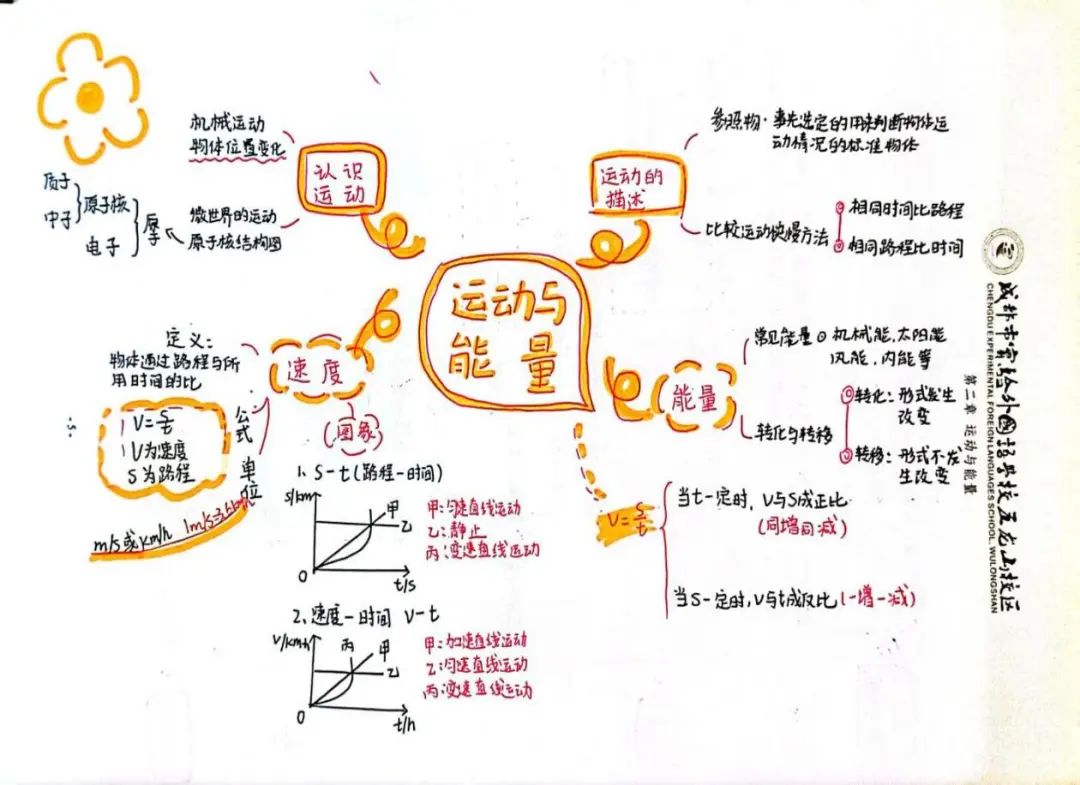 运动与
能量
认识
运动
机械运动
物体位置变化
微世界的运动
原子核结构图
原子
原子核
质子
中子
电子
运动的
描述
参照物·事先选定的用来判断物体运
动情况的标准物体
比较运动快慢方法
相同时间比路程
相同路程比时间
速度
定义:
物体通过路程与所
用时间的比
公式
V=s/t
V为速度
S为路程
单位
m/s或km/h 1m/s=3.6km/h
(图象)
1、S-t(路程-时间)
s/km
甲
乙
0
t/s
甲:匀速直线运动
乙:静止
丙:变速直线运动
2、速度-时间 V-t
V/km·h
丙
甲
乙
0
t/h
甲:加速直线运动
乙:匀速直线运动
丙:变速直线运动
能量
常见能量
机械能,太阳能
风能,内能等
转化与转移
转化:形式发生
改变
转移:形式不发
生改变
V=S/t
当t一定时,V与S成正比
(同增同减)
当S一定时,V与t成反比(一增一减)
成都市实验外国语学校五龙山校区
CHENGDU EXPERIMENTAL FOREIGN LANGUAGES SCHOOL, WULONGSHAN
第二章 运动与能量